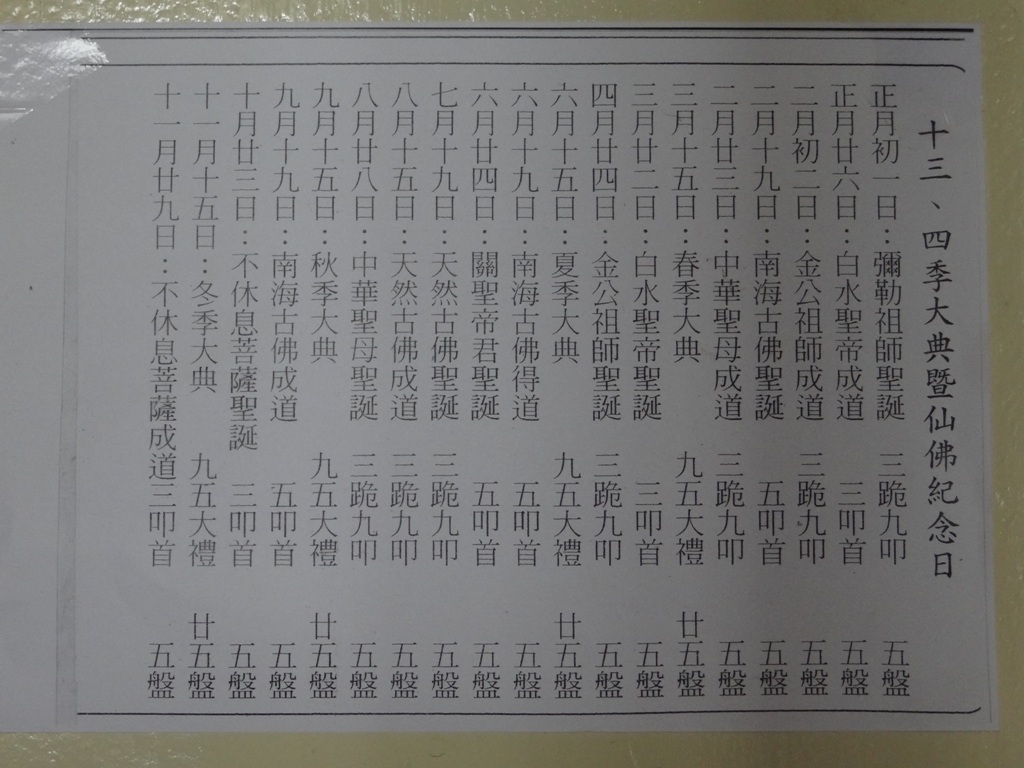 十三、四季大典暨仙佛紀念日
正月初一日：彌勒祖師聖誕　三跪九叩　五盤
正月廿六日：白水聖帝成道　三叩首　五盤
二月初二日：金公祖師成道　三跪九叩　五盤
二月十九日：南海古佛聖誕　五叩首　五盤
二月廿三日：中華聖母成道　三跪九叩　五盤
三月十五日：春季大典　九五大禮　廿五盤
三月廿二日：白水聖帝聖誕　三叩首　五盤
四月廿四日：金公祖師聖誕　三跪九叩　五盤
六月十五日：夏季大典　九五大禮　廿五盤
六月十九日：南海古佛得道　五叩首　五盤
六月廿四日：關聖帝君聖誕　五叩首　五盤
七月十九日：天然古佛聖誕　三跪九叩　五盤
八月十五日：天然古佛成道　三跪九叩　五盤
八月廿八日：中華聖母聖誕　三跪九叩　五盤
九月十五日：秋季大典　九五大禮　廿五盤
九月十九日：南海古佛成道　五叩首　五盤
十月廿三日：不休息菩薩聖誕　三叩首　五盤
十一月十五日：冬季大典　九五大禮　廿五盤
十一月廿九日：不休息菩薩成道三叩首　五盤